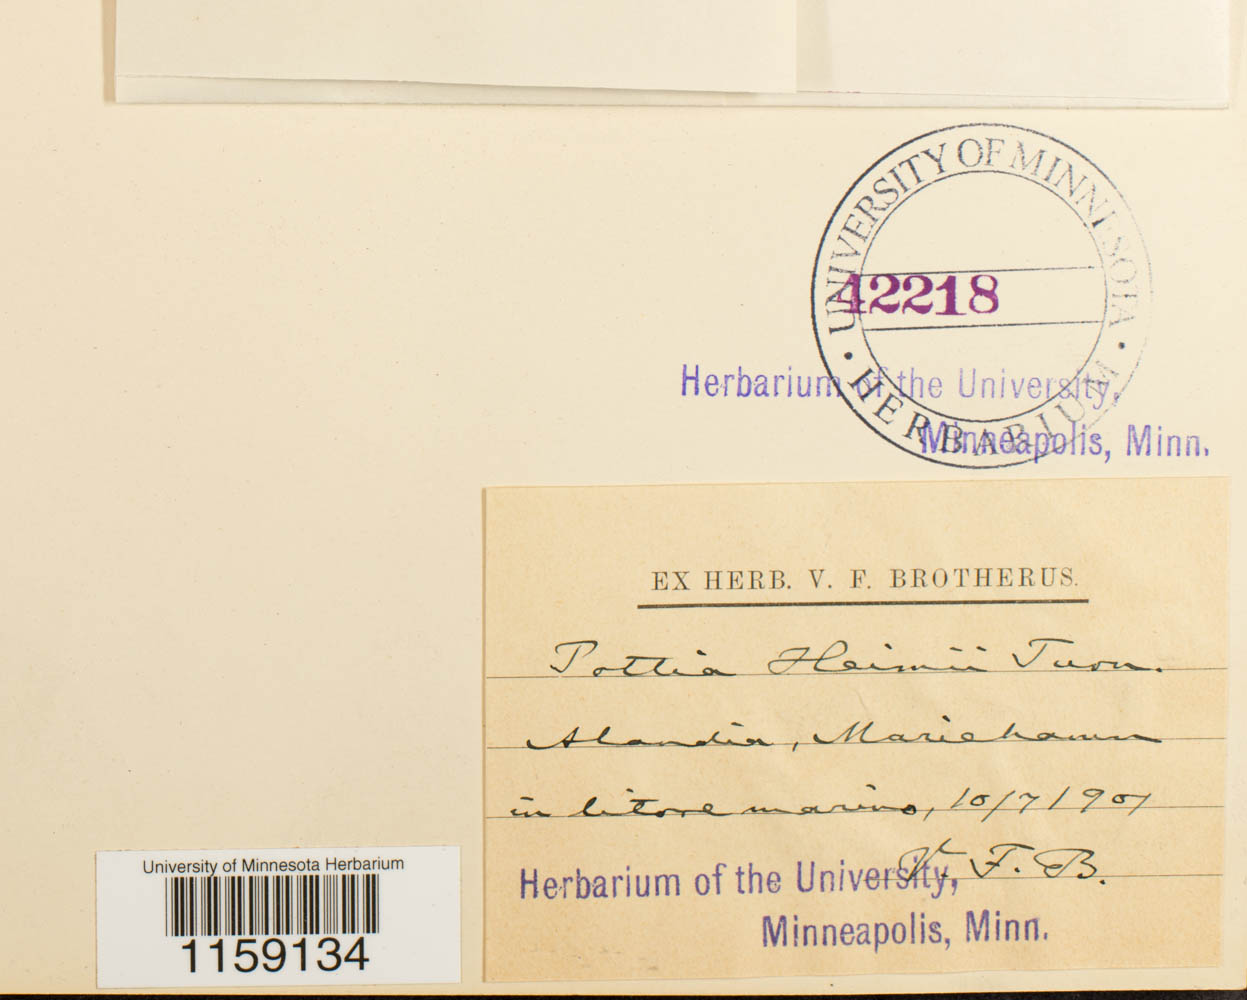 UNIVERSITY OF MINNESOTA
• HERBARIUM •
42218
Herbarium of the University,
Minneapolis, Minn.
EX HERB. V. F. BROTHERUS.
Pottia Heimii Turn.
Alandia, Mariehamn
in litore marino, 10/7 1901
V. F. B.
Herbarium of the University,
Minneapolis, Minn.
University of Minnesota Herbarium
1159134